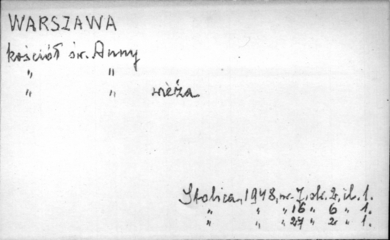 WARSZAWA
kościół św. Anny
" "
" " wieża
Stolica, 1948, nr. 7, str. 2, il. 1.
" " " 16 " 6 " 1.
" " " 27 " 2 " 1.